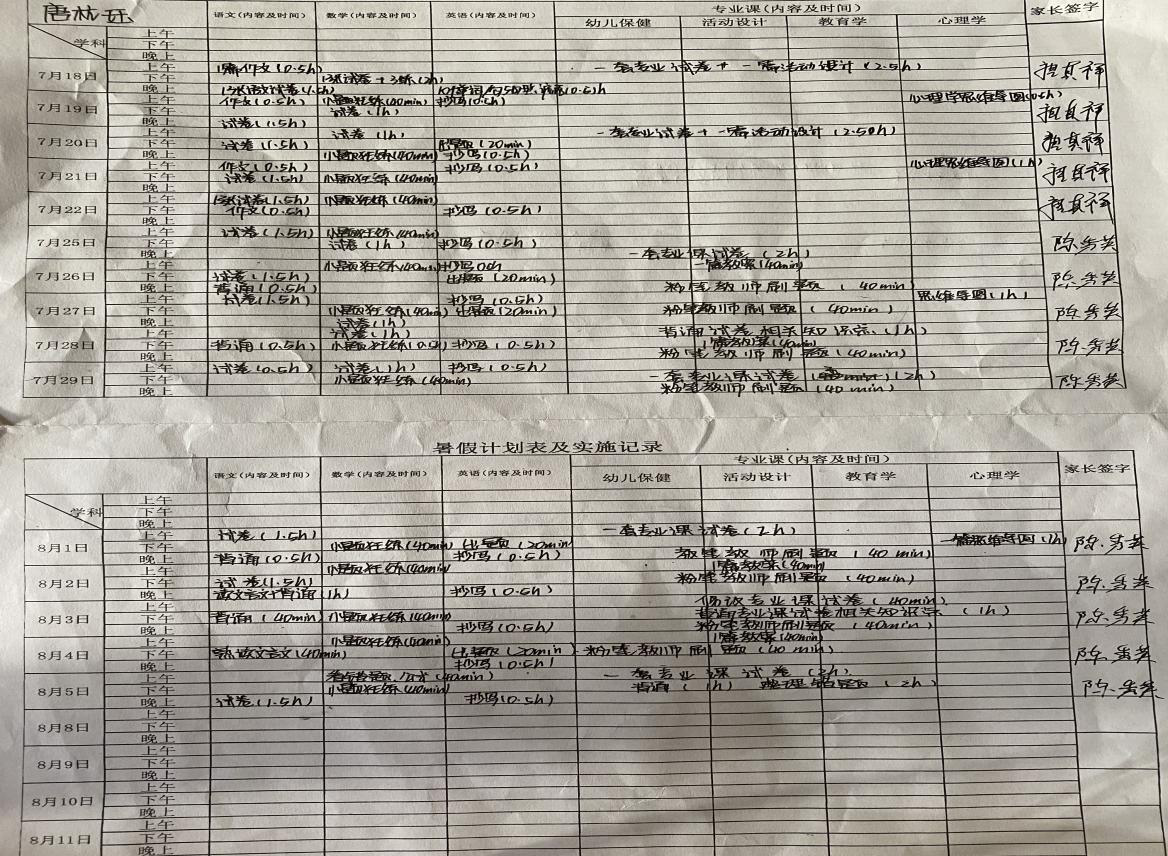 唐林珏
语文(内容及时间) 数学(内容及时间) 英语(内容及时间) 专业课(内容及时间) 家长签字
幼儿保健 活动设计 教育学 心理学
学科 上午
下午
晚上
7月18日 上午 1篇作文(0.5h) 一套专业试卷 + 一篇活动设计(2.5h)
下午 1张试卷+3练(2h)
晚上 1张语文试卷(1.5h)
7月19日 上午 作文(0.5h) 小题狂练(40min) 抄写(0.5h) 心理学思维导图(0.5h)
下午 试卷(1h)
晚上 试卷(1.5h)
7月20日 上午 试卷(1h) 一套专业试卷 + 一篇活动设计(2.50h)
下午 试卷(1.5h) 出题(20min)
晚上 小题狂练(40min) 抄写(0.5h)
7月21日 上午 作文(0.5h) 抄写(0.5h) 心理思维导图(1h)
下午 试卷(1.5h) 小题狂练(40min)
晚上
7月22日 上午 1张试卷(1.5h) 小题狂练(40min)
下午 作文(0.5h) 抄写(0.5h)
晚上
7月25日 上午 试卷(1.5h) 小题狂练(40min) 陈秀英
下午 试卷(1h) 抄写(0.5h)
晚上 一套专业课试卷(2h)
7月26日 上午 小题狂练(40min) 抄写 一篇教案(40min) 陈秀英
下午 试卷(1.5h) 出题(20min)
晚上 背诵(0.5h) 粉笔教师刷题(40min)
7月27日 上午 试卷(1.5h) 抄写(0.5h) 思维导图(1h) 陈秀英
下午 小题狂练(40min) 出题(20min) 粉笔教师刷题(40min)
晚上 试卷(1h)
7月28日 上午 试卷(1h) 背诵试卷相关知识点(1h) 陈秀英
下午 背诵(0.5h) 小题狂练(0.5h) 抄写(0.5h) 1篇教案(40min)
晚上 粉笔教师刷题(40min)
7月29日 上午 试卷(0.5h) 试卷(1h) 抄写(0.5h) 陈秀英
下午 小题狂练(40min) 一套专业课试卷(2h)
晚上 粉笔教师刷题(40min)
暑假计划表及实施记录
语文(内容及时间) 数学(内容及时间) 英语(内容及时间) 专业课(内容及时间) 家长签字
幼儿保健 活动设计 教育学 心理学
学科 上午
下午
晚上
8月1日 上午 试卷(1.5h) 一套专业课试卷(2h) 陈秀英
下午 小题狂练(40min) 出题(20min) 一篇思维导图(1h)
晚上 背诵(0.5h) 抄写(0.5h) 粉笔教师刷题(40min)
8月2日 上午 小题狂练(40min) 1篇教案(40min) 陈秀英
下午 试卷(1.5h) 粉笔教师刷题(40min)
晚上 读文言文+背诵(1h) 抄写(0.5h)
8月3日 上午 专业课试卷(40min) 陈秀英
下午 背诵(40min) 小题狂练(40min) 背诵专业课试卷相关知识点(1h)
晚上 抄写(0.5h) 粉笔教师刷题(40min)
8月4日 上午 小题狂练(40min) 1篇教案(40min) 陈秀英
下午 熟读文言文(40min) 出题(20min) 粉笔教师刷题(40min)
晚上 抄写(0.5h)
8月5日 上午 看错题,公式(40min) 一套专业课试卷(2h) 陈秀英
下午 小题狂练(40min) 背诵(1h) 整理错题(2h)
晚上 试卷(1.5h) 抄写(0.5h)
8月8日 上午
下午
晚上
8月9日 上午
下午
晚上
8月10日 上午
下午
晚上
8月11日 上午
下午
晚上